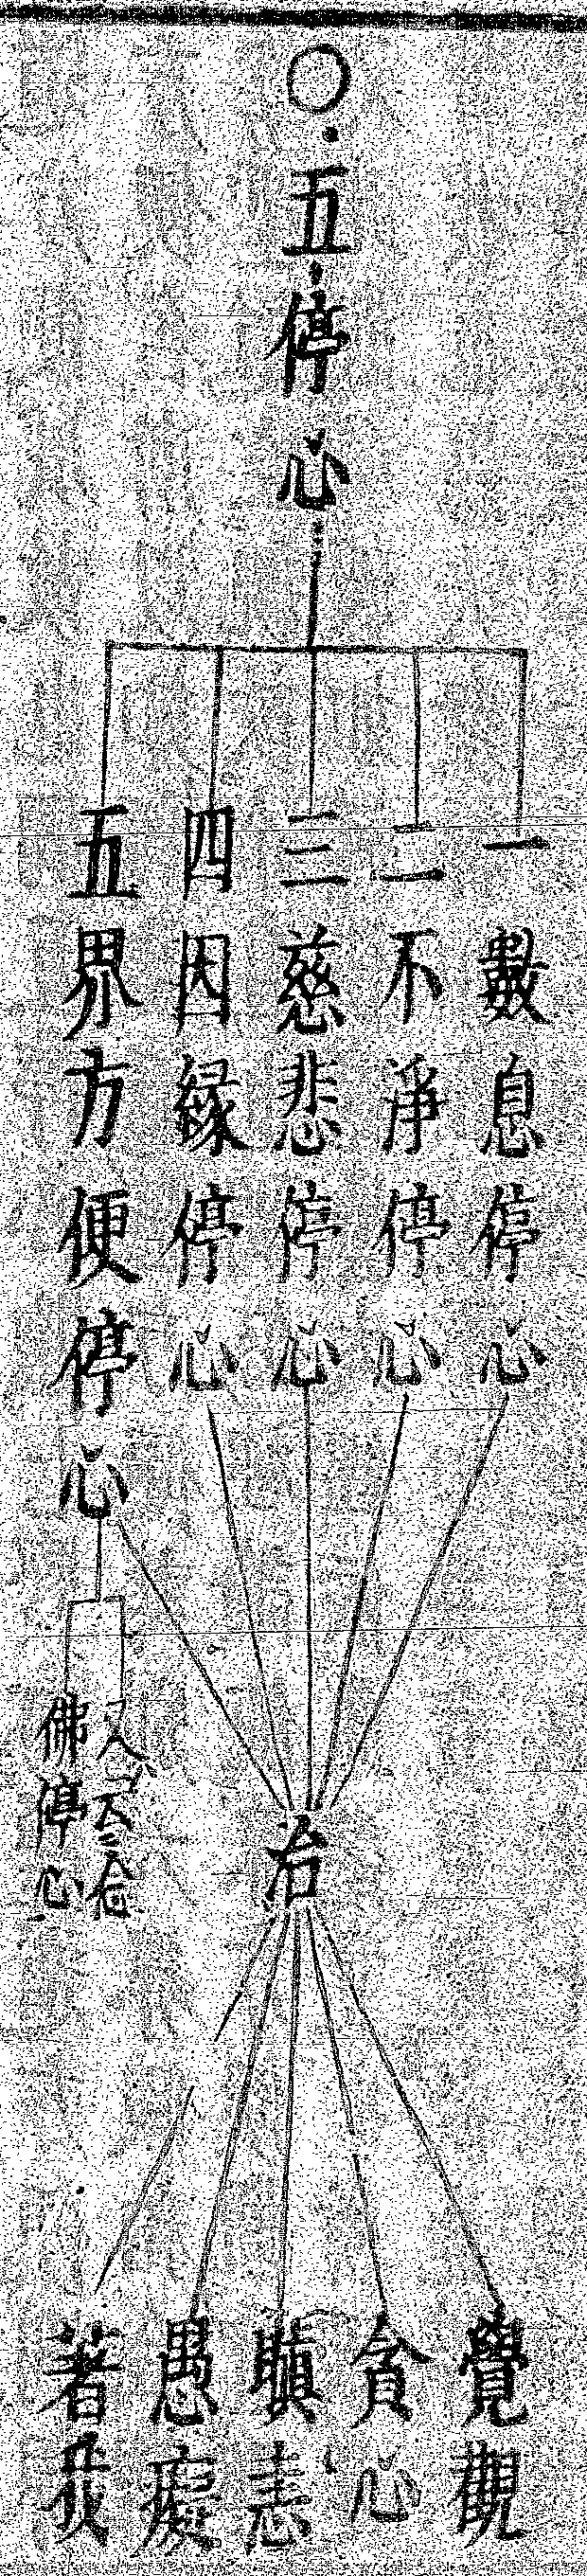 〇五停心
一數息停心
二不淨停心
三慈悲停心
四因緣停心
五界方便停心
又云念
佛停心
治
覺觀
貪心
瞋恚
愚癡
著我